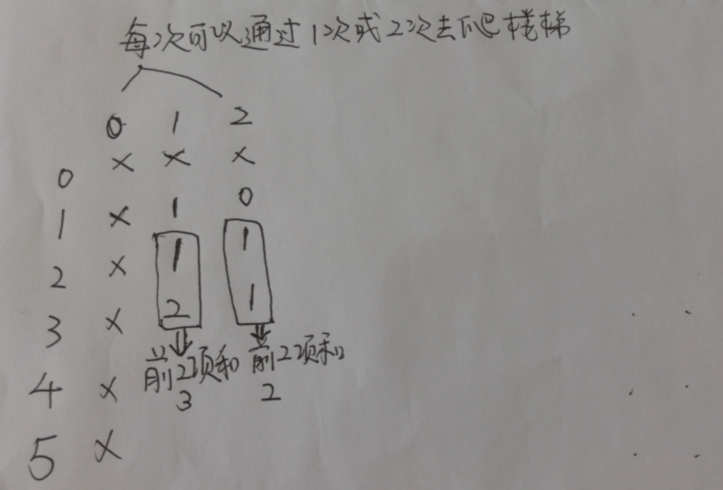 每次可以通过1次或2次去爬楼梯
0 1 2
0 × × ×
1 × 1 0
2 × 1 1
3 × 2 1
前2项和 前2项和
4 × 3 2
5 ×